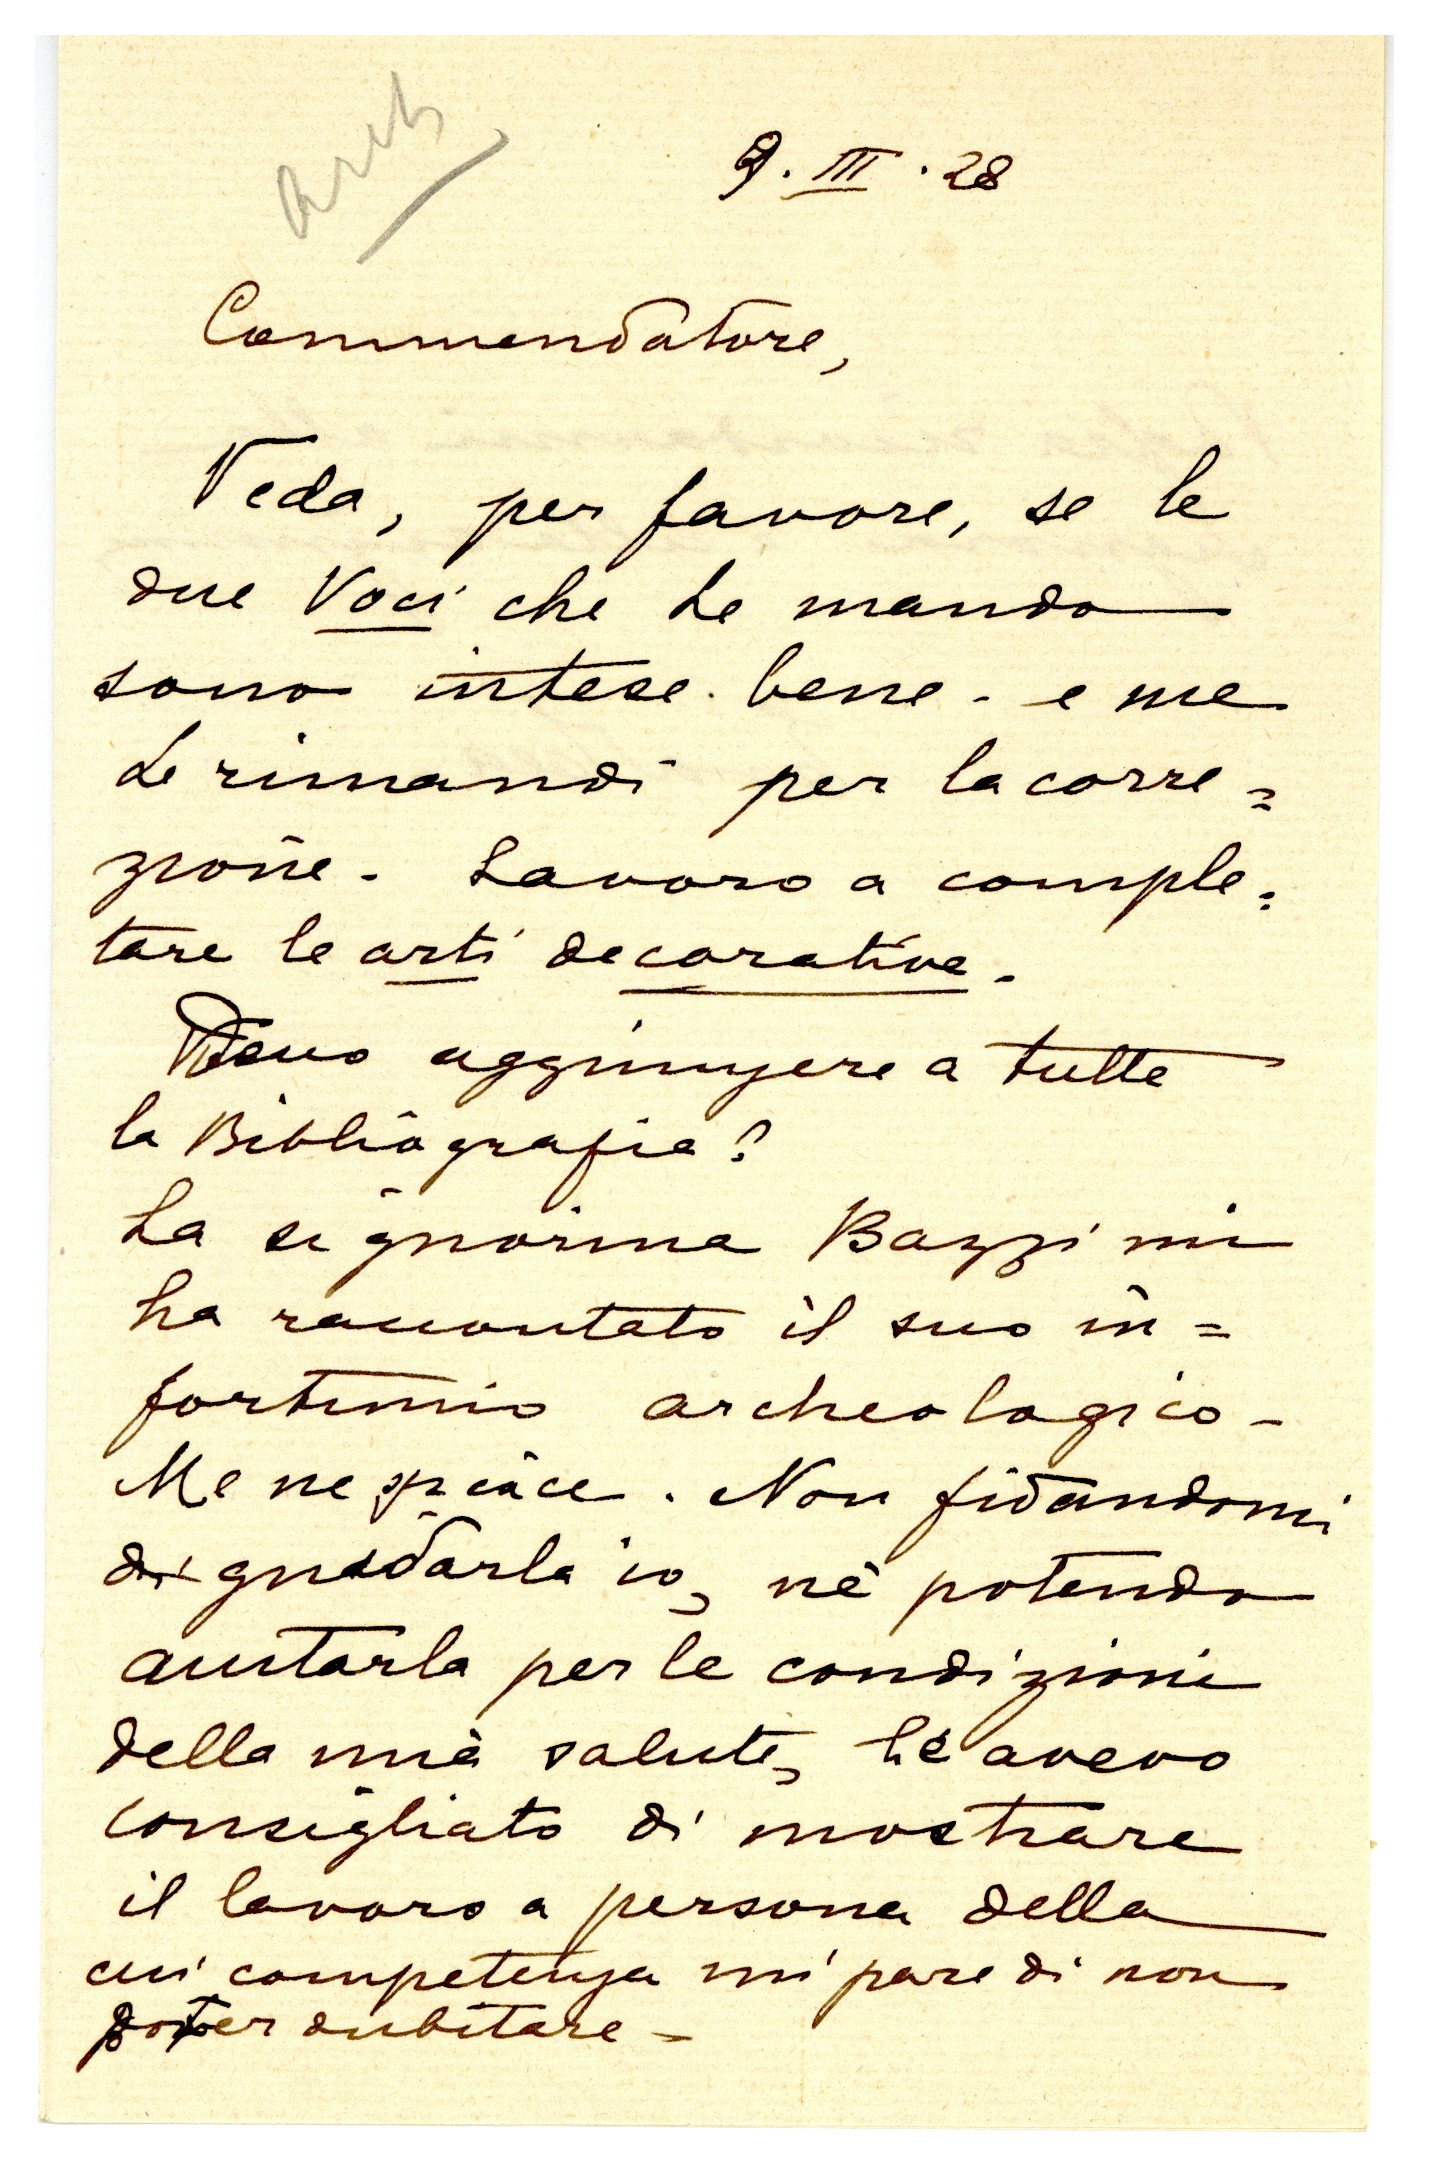 9. III. 28
Commendatore,
Veda, per favore, se le
due Voci che Le mando
sono intese bene - e me
Le rimandi per la corre=
zione. Lavoro a comple=
tare le arti decorative.
Devo aggiungere a tutte
la Bibliografia?
La signorina Bazzi mi
ha raccontato il suo in=
fortunio archeologico -
Me ne spiace. Non fidandomi
di guidarla io, nè potendo
aiutarla per le condizioni
della mia salute, le avevo
consigliato di mostrare
il lavoro a persona della
cui competenza mi pare di non
poter dubitare -